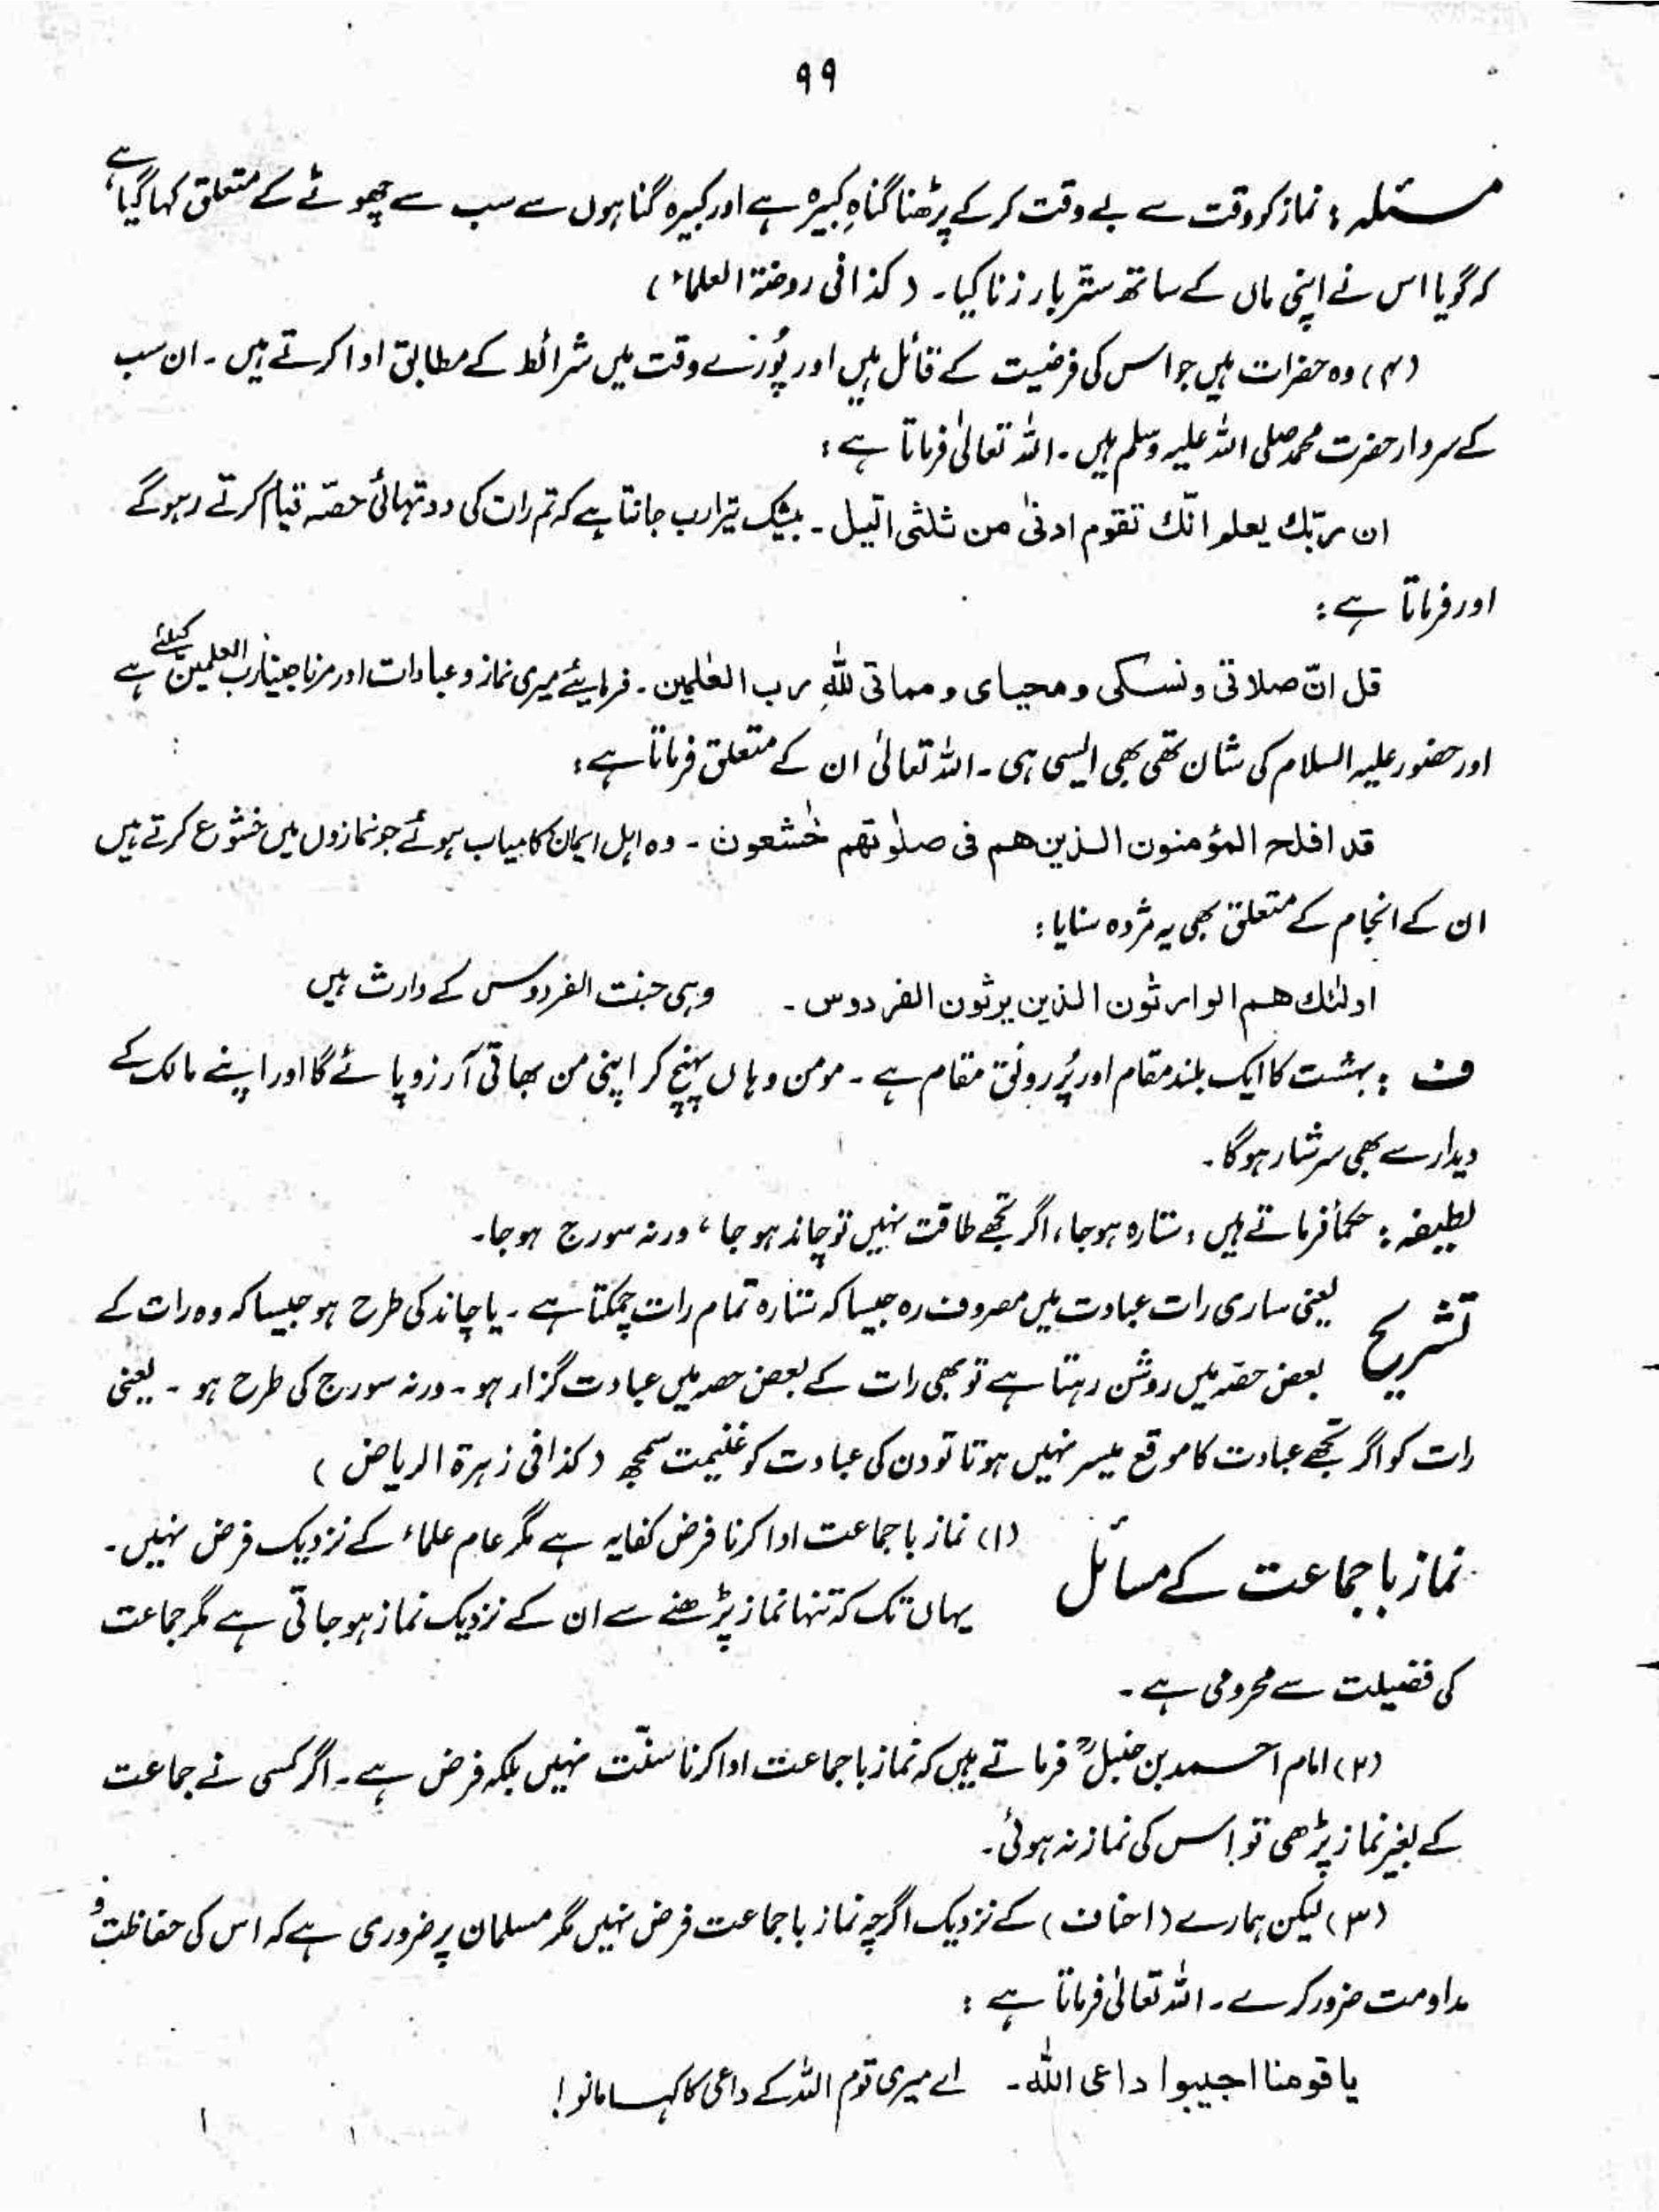 ۹۹
مسئلہ : نماز کو وقت سے بے وقت کر کے پڑھنا گناہِ کبیرہ ہے اور کبیرہ گناہوں سے سب سے چھوٹے کے متعلق کہا گیا ہے
کہ گویا اس نے اپنی ماں کے ساتھ ستّر بار زنا کیا۔ (کذا فی روضۃ العلماء)
(۴) وہ حضرات ہیں جو اس کی فرضیت کے قائل ہیں اور پُورے وقت میں شرائط کے مطابق ادا کرتے ہیں۔ ان سب
کے سردار حضرت محمد صلی اللہ علیہ وسلم ہیں۔ اللہ تعالیٰ فرماتا ہے :
ان ربّك يعلم انّك تقوم ادنیٰ من ثلثی الّیل۔ بیشک تیرا رب جانتا ہے کہ تم رات کی دو تہائی حصّہ قیام کرتے رہو گے
اور فرماتا ہے :
قل انّ صلاتی و نسکی و محیای و مماتی للّٰہِ رب العٰلمین۔ فرمائیے میری نماز و عبادات اور مرنا جینا رب العلمین کیلئے ہے
اور حضور علیہ السلام کی شان تھی بھی ایسی ہی۔ اللہ تعالیٰ ان کے متعلق فرماتا ہے :
قد افلح المؤمنون الذین ھم فی صلٰوتھم خٰشعون۔ وہ اہل ایمان کامیاب ہوئے جو نمازوں میں خشوع کرتے ہیں
ان کے انجام کے متعلق بھی یہ مژدہ سنایا :
اولٰئك ھم الوارثون الذین یرثون الفردوس۔ وہی جنت الفردوس کے وارث ہیں
ف : بہشت کا ایک بلند مقام اور پُر رونق مقام ہے۔ مومن وہاں پہنچ کر اپنی من بھاتی آرزو پائے گا اور اپنے مالک کے
دیدار سے بھی سرشار ہوگا۔
لطیفہ : حکمأ فرماتے ہیں ، ستارہ ہو جا ، اگر تجھے طاقت نہیں تو چاند ہو جا ، ورنہ سورج ہو جا۔
تشریح یعنی ساری رات عبادت میں مصروف رہ جیسا کہ ستارہ تمام رات چمکتا ہے۔ یا چاند کی طرح ہو جیسا کہ وہ رات کے
بعض حصّہ میں روشن رہتا ہے تو بھی رات کے بعض حصہ میں عبادت گزار ہو۔ ورنہ سورج کی طرح ہو۔ یعنی
رات کو اگر تجھے عبادت کا موقع میسر نہیں ہوتا تو دن کی عبادت کو غنیمت سمجھ (کذا فی زہرۃ الریاض)
نماز باجماعت کے مسائل (۱) نماز باجماعت ادا کرنا فرض کفایہ ہے مگر عام علماء کے نزدیک فرض نہیں۔
یہاں تک کہ تنہا نماز پڑھنے سے ان کے نزدیک نماز ہو جاتی ہے مگر جماعت
کی فضیلت سے محرومی ہے۔
(۲) امام احمد بن حنبلؒ فرماتے ہیں کہ نماز باجماعت ادا کرنا سنّت نہیں بلکہ فرض ہے۔ اگر کسی نے جماعت
کے بغیر نماز پڑھی تو اس کی نماز نہ ہوئی۔
(۳) لیکن ہمارے (احناف) کے نزدیک اگرچہ نماز باجماعت فرض نہیں مگر مسلمان پر ضروری ہے کہ اس کی حفاظت و
مداومت ضرور کرے۔ اللہ تعالیٰ فرماتا ہے :
یا قومنا اجیبوا داعی اللّٰہ۔ اے میری قوم اللہ کے داعی کا کہا مانو !